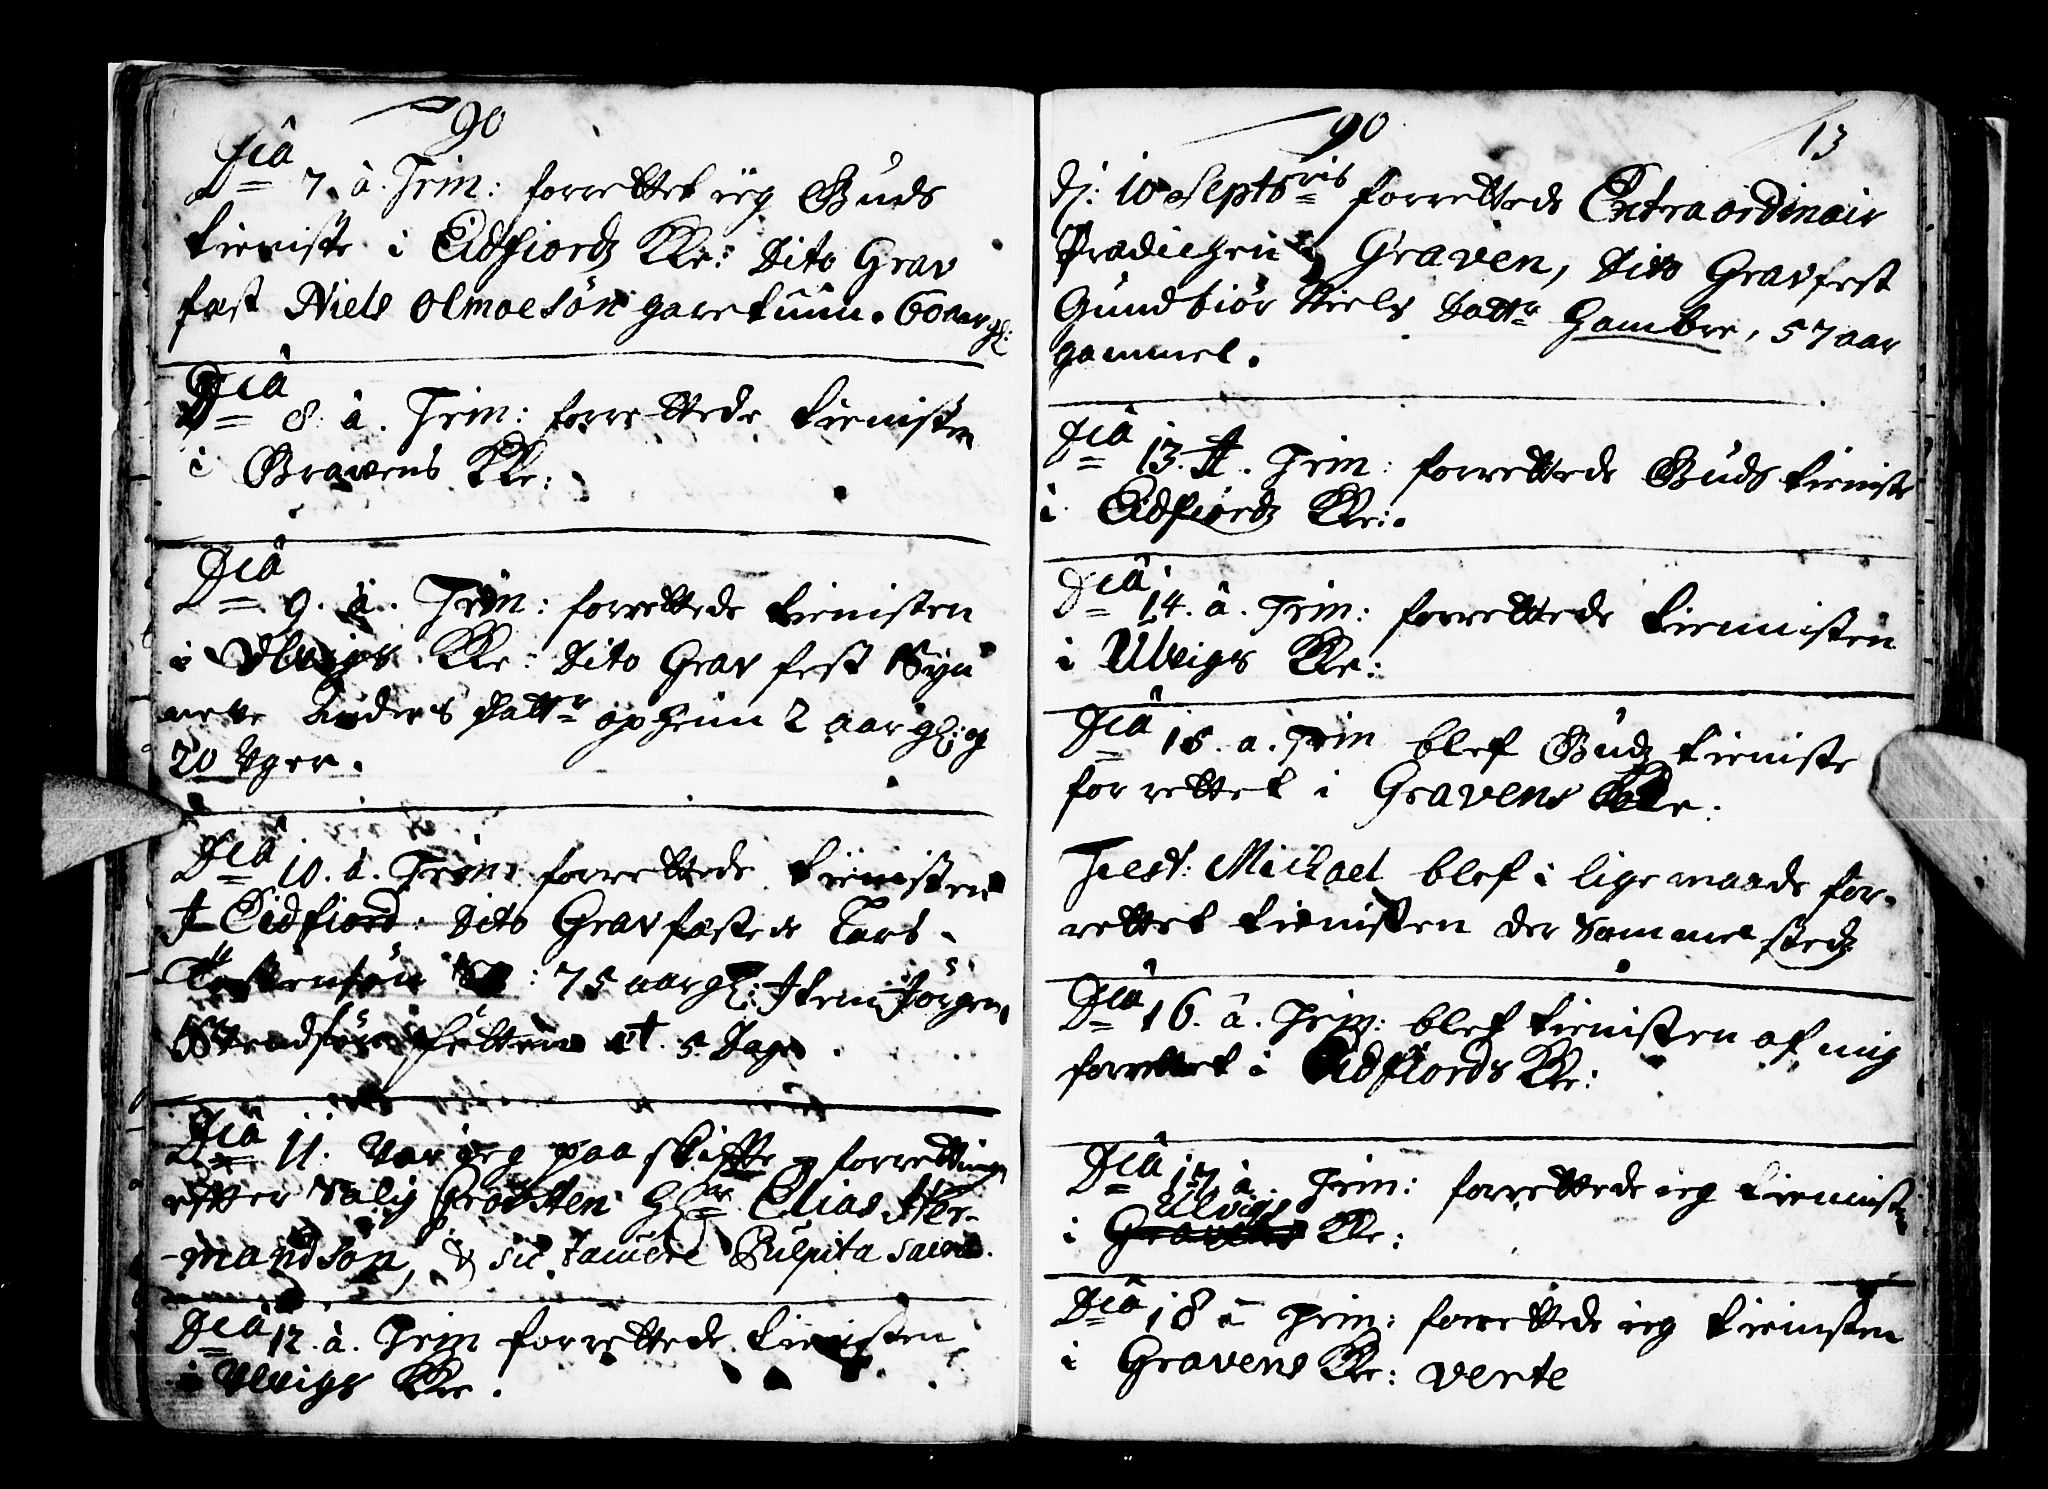 90
Dca 7. à. Trin: forrettet ieg Guds
tieniste i Eidfiords Kke: Dito Grav
fest Niels Olmoesön garetuun. 60 aar gl:
Dca 8. à. Trin: forrettede tienisten
i Gravens Kke:
Dca 9. à. Trin: forrettede tienisten
i Ulvigs Kke: Dito Grav fest Syn
neve Anders Dattr opheim 2 aar gl: og
20 Uger.
Dca 10. à. Trin: forrettede tienisten
I Eidfiord. Dito Gravfestede Lars
Tostensön : 75 aar gl: Item Jörgen
æt. 5 Dage.
Dca 11. Var ieg paa skifte forretning
efter Salig Provsten Hr Elias Her-
mandsön, & sic tacuere Pulpita sacra.
Dca 12. à. Trin forrettede tienisten
i Ulvigs Kke.
90 13
Dj: 10 Septbris forrettede Extraordinair
Prædichen i Graven, Dito Gravfest
Gundbiör Niels Dattr Hambre, 57 aar
gammel.
Dca 13. A. Trin: forrettede Guds tieniste
i Eidfiords Kke:.
Dca 14. à. Trin: forrettede tiennisten
i Ulvigs Kke:
Dca 15. a. Trin blef Guds tieniste
forrettet i Gravens Kke:
Fest: Michael blef i lige maade for-
rettet tienisten der Sammesteds
Dca 16. à. Trin: blef tienisten af mig
forrettet i Eidfiords Kke:
Dca 17. à. Trin: forrettede ieg tienisten
Ulvigs
i Gravens Kke:
Dca 18 à Trin: forrettede ieg tienisten
i Gravens Kke: verte